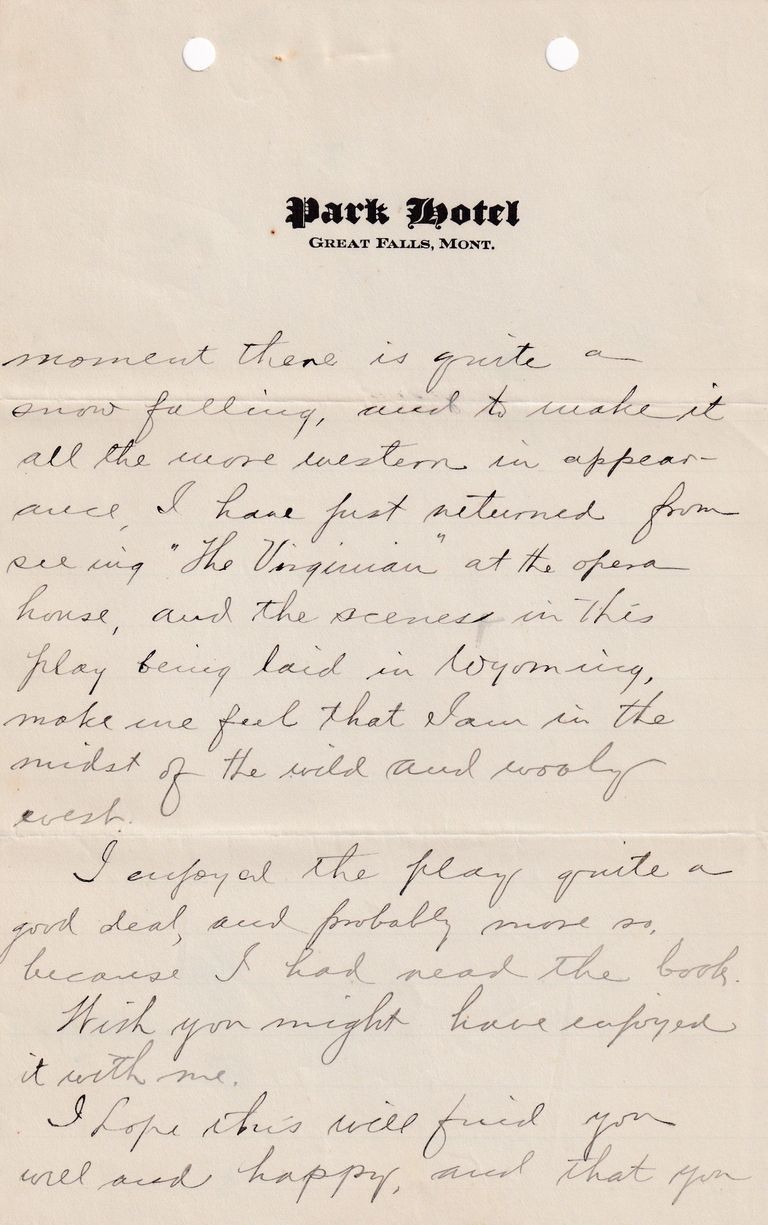 Park Hotel
GREAT FALLS, MONT.
moment there is quite a
snow falling, and to make it
all the more western in appear-
ance, I have just returned from
seeing "The Virginian" at the opera
house, and the scenes in this
play being laid in Wyoming,
make me feel that I am in the
midst of the wild and wooly
west.
I enjoyed the play quite a
good deal, and probably more so,
because I had read the book.
Wish you might have enjoyed
it with me.
I hope this will find you
well and happy, and that you